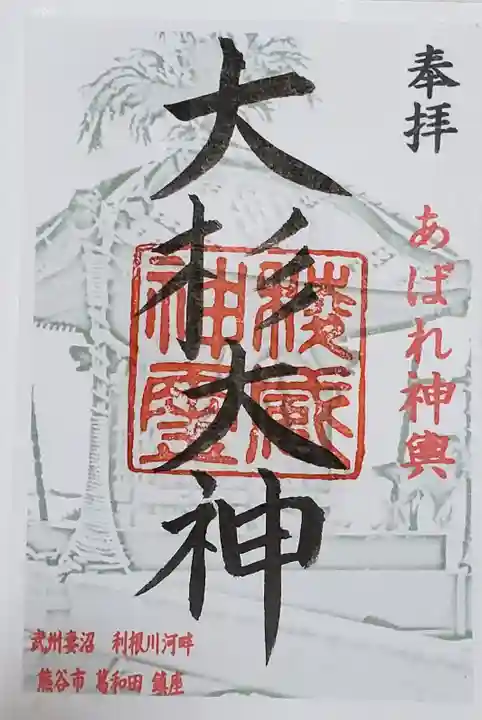 奉拝
あばれ神輿
大杉大神
稜威
神霊
武州妻沼　利根川河畔
熊谷市　葛和田　鎮座